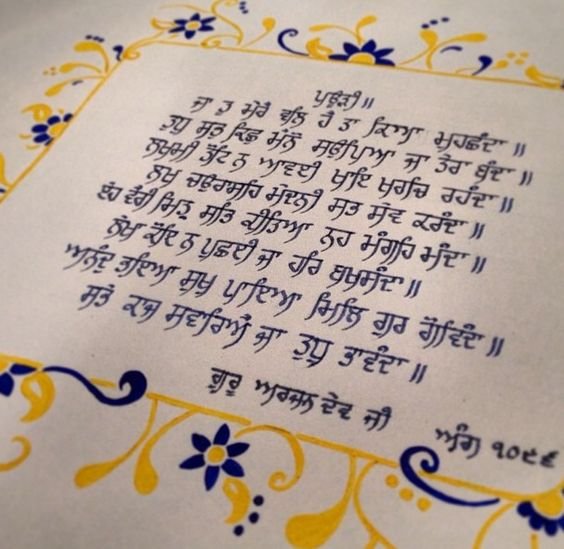 ਪਉੜੀ ॥
ਜਾ ਤੂ ਮੇਰੈ ਵਲਿ ਹੈ ਤਾ ਕਿਆ ਮੁਹਛੰਦਾ ॥
ਤੁਧੁ ਸਭੁ ਕਿਛੁ ਮੈਨੋ ਸਉਪਿਆ ਜਾ ਤੇਰਾ ਬੰਦਾ ॥
ਲਖਮੀ ਤੋਟਿ ਨ ਆਵਈ ਖਾਇ ਖਰਚਿ ਰਹੰਦਾ ॥
ਲਖ ਚਉਰਾਸੀਹ ਮੇਦਨੀ ਸਭ ਸੇਵ ਕਰੰਦਾ ॥
ਏਹ ਵੈਰੀ ਮਿਤ੍ਰ ਸਭਿ ਕੀਤਿਆ ਨਹ ਮੰਗਹਿ ਮੰਦਾ ॥
ਲੇਖਾ ਕੋਇ ਨ ਪੁਛਈ ਜਾ ਹਰਿ ਬਖਸੰਦਾ ॥
ਅਨੰਦੁ ਭਇਆ ਸੁਖੁ ਪਾਇਆ ਮਿਲਿ ਗੁਰ ਗੋਵਿੰਦਾ ॥
ਸਭੇ ਕਾਜ ਸਵਾਰਿਐ ਜਾ ਤੁਧੁ ਭਾਵੰਦਾ ॥
ਗੁਰੂ ਅਰਜਨ ਦੇਵ ਜੀ
ਅੰਗ ੧੦੯੬